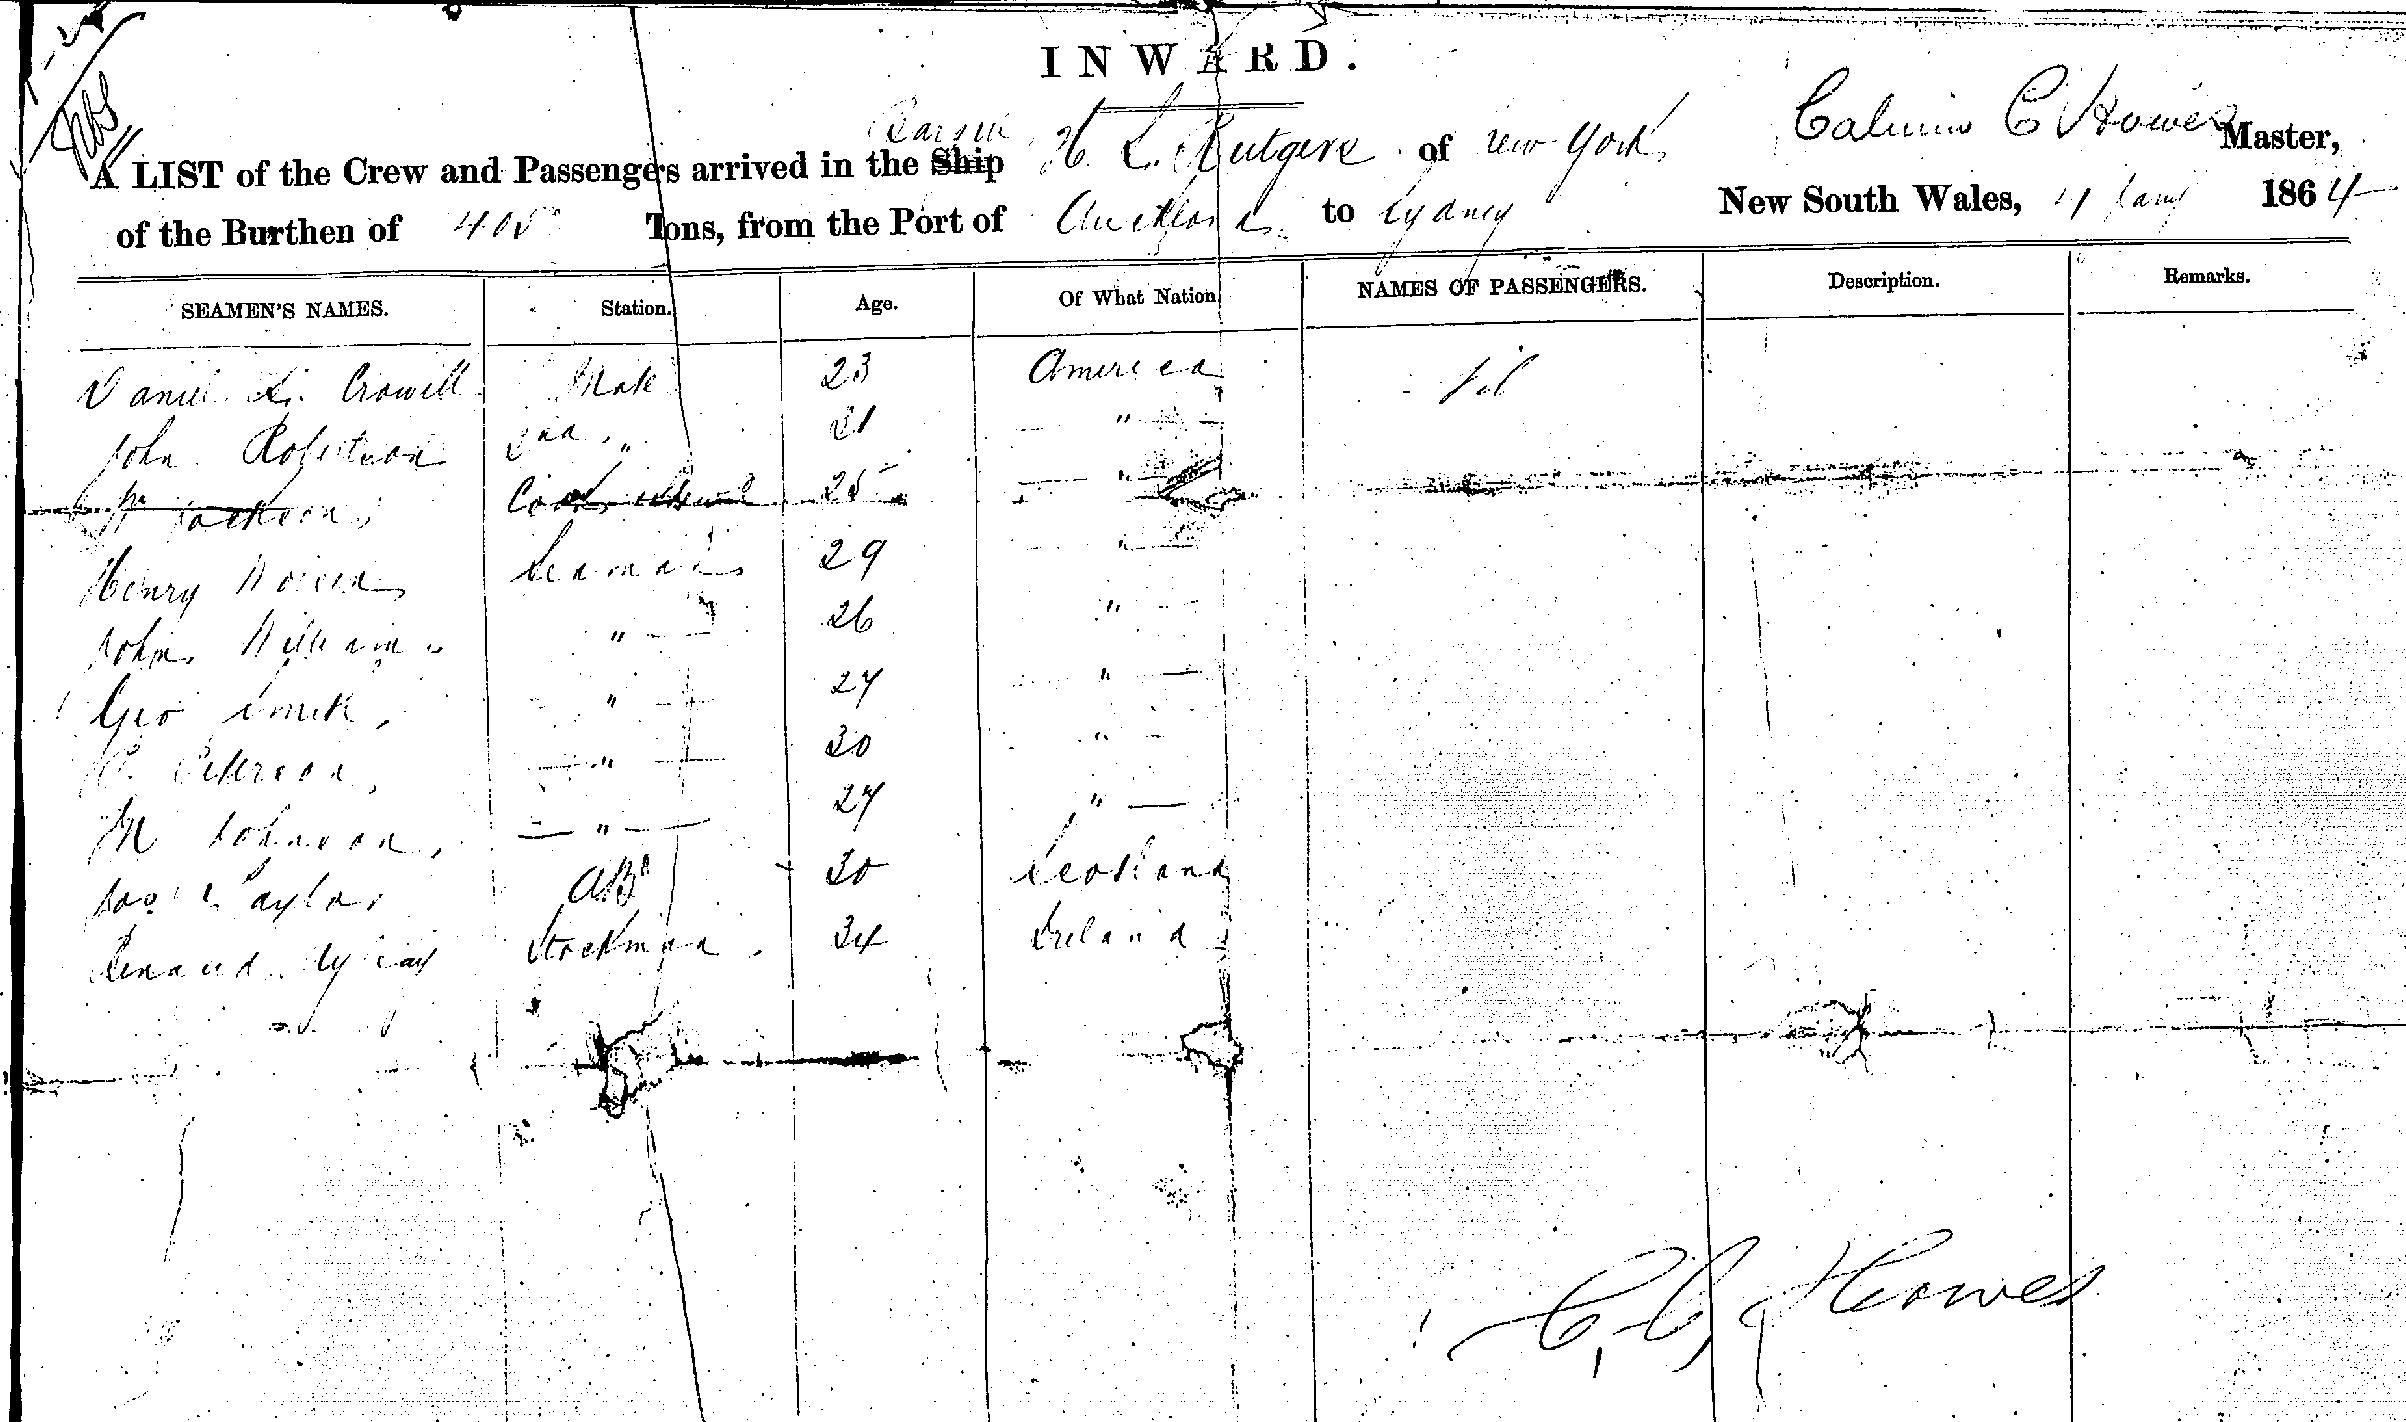 INWARD.
Barque
A LIST of the Crew and Passengers arrived in the Ship H. L. Rutgers of New York Calvin C Howes Master,
of the Burthen of 405 Tons, from the Port of Auckland to Sydney New South Wales, 11 Jany 1864
SEAMEN'S NAMES. Station. Age. Of What Nation NAMES OF PASSENGERS. Description. Remarks.
Daniel L. Crowell Mate 23 America Nil
John Robertson 2nd " 21 "
Wm Jackson Cook 25 "
Henry Seaman 29 "
John Williams " 26 "
Geo Smith " 27 "
Peterson " 30 "
M Johnson " 27 "
Jas Taylor AB 30 Scotland
Stockman 34 Ireland
C. C. Howes